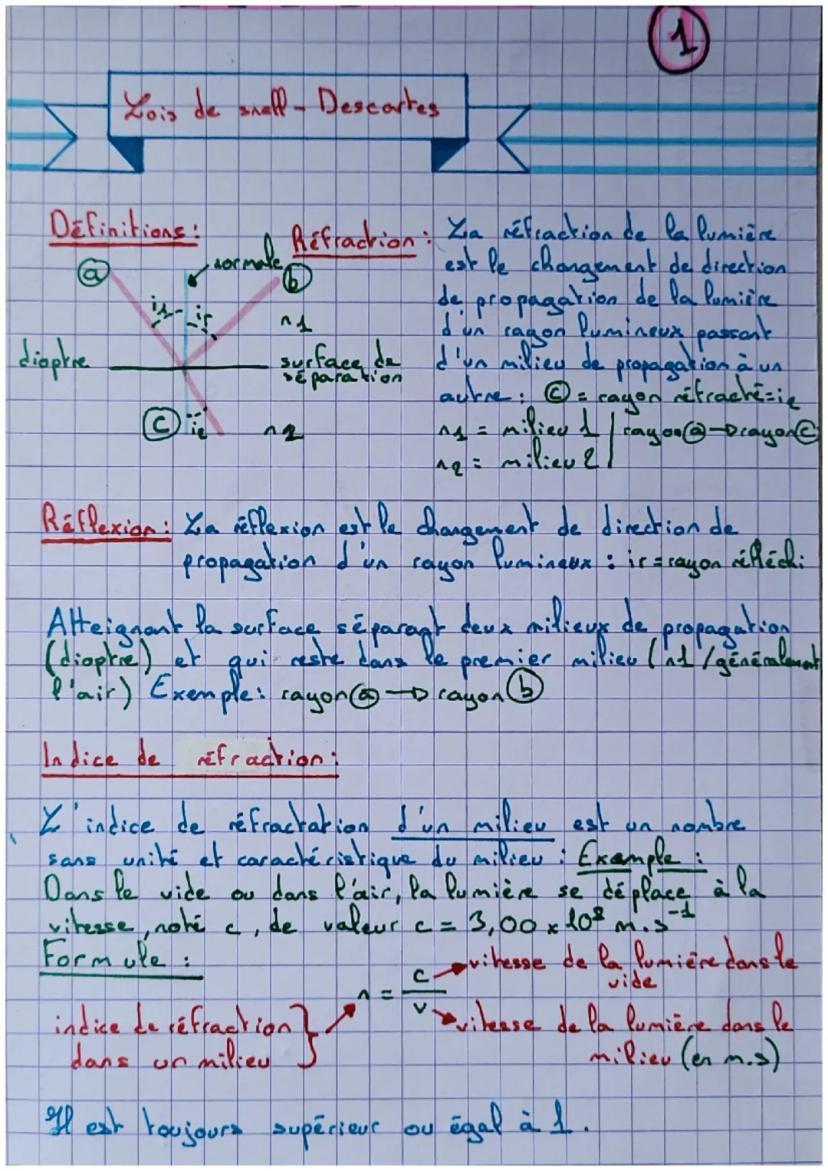 1
Lois de snell - Descartes
Définitions :
a
normale
b
i1
ir
n1
dioptre
surface de
séparation
c
i2
n2
Réfraction : La réfraction de la lumière
est le changement de direction
de propagation de la lumière
d'un rayon lumineux passant
d'un milieu de propagation à un
autre : c = rayon réfracté = i2
n1 = milieu 1 | rayon a → rayon c
n2 = milieu 2 |
Réflexion : La réflexion est le changement de direction de
propagation d'un rayon lumineux : ir = rayon réfléchi
Atteignant la surface séparant deux milieux de propagation
(dioptre) et qui reste dans le premier milieu (n1 / généralement
l'air) Exemple : rayon a → rayon b
Indice de réfraction :
L'indice de réfractation d'un milieu est un nombre
sans unité et caractéristique du milieu : Example :
Dans le vide ou dans l'air, la lumière se déplace à la
vitesse, noté c, de valeur c = 3,00 x 10⁸ m.s⁻¹
Formule :
n = c/v
vitesse de la lumière dans le
vide
indice de réfraction
dans un milieu
vitesse de la lumière dans le
milieu (en m.s)
Il est toujours supérieur ou égal à 1.